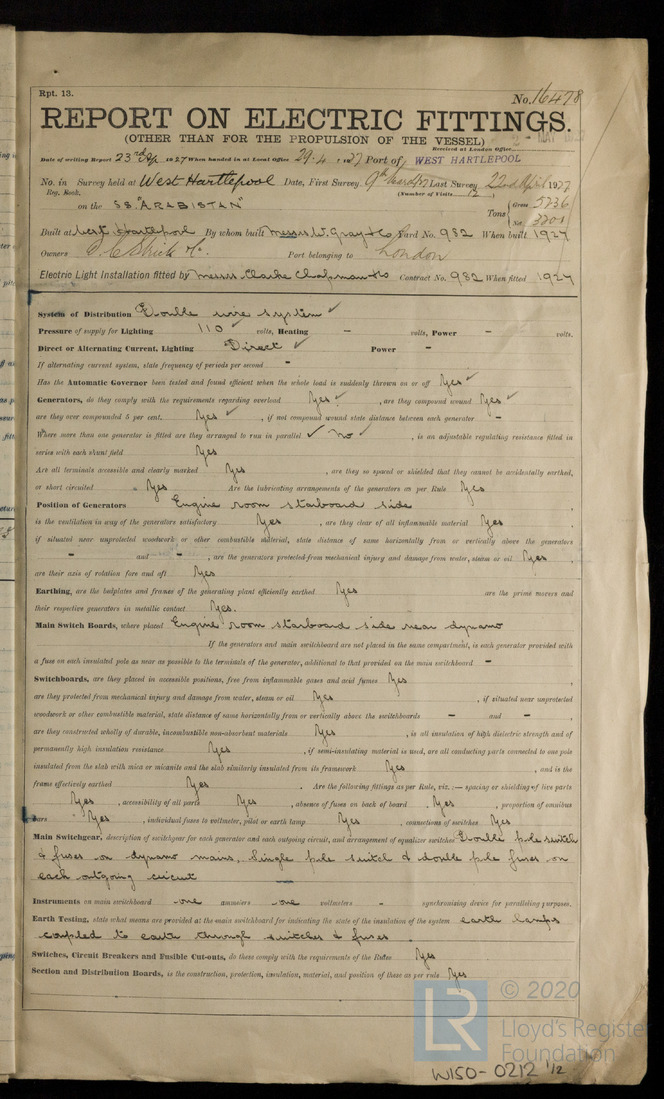 Rpt. 13.
No. 16478
REPORT ON ELECTRIC FITTINGS.
(OTHER THAN FOR THE PROPULSION OF THE VESSEL)
Received at London Office
Date of writing Report 23rd Ap 1927 When handed in at Local Office 29.4.1927 Port of WEST HARTLEPOOL
No. in Survey held at West Hartlepool Date, First Survey 9th Last Survey 22nd April 1927
Reg. Book. (Number of Visits 12)
on the SS. "ARABISTAN" Tons { Gross 5736
Net
Built at West Hartlepool By whom built Messrs W. Gray & Co Yard No. 982 When built 1927
Owners Port belonging to London
Electric Light Installation fitted by Messrs Clarke Chapman & Co Contract No. 982 When fitted 1927
System of Distribution Double wire system ✓
Pressure of supply for Lighting 110 ✓ volts, Heating - volts, Power - volts.
Direct or Alternating Current, Lighting Direct ✓ Power -
If alternating current system, state frequency of periods per second -
Has the Automatic Governor been tested and found efficient when the whole load is suddenly thrown on or off Yes ✓
Generators, do they comply with the requirements regarding overload Yes ✓, are they compound wound Yes ✓
are they over compounded 5 per cent. Yes ✓, if not compound wound state distance between each generator -
Where more than one generator is fitted are they arranged to run in parallel ✓ No ✓, is an adjustable regulating resistance fitted in
series with each shunt field Yes
Are all terminals accessible and clearly marked Yes, are they so spaced or shielded that they cannot be accidentally earthed,
or short circuited Yes Are the lubricating arrangements of the generators as per Rule Yes
Position of Generators Engine room starboard side
is the ventilation in way of the generators satisfactory Yes, are they clear of all inflammable material Yes,
if situated near unprotected woodwork or other combustible material, state distance of same horizontally from or vertically above the generators
- and -, are the generators protected from mechanical injury and damage from water, steam or oil Yes,
are their axis of rotation fore and aft Yes
Earthing, are the bedplates and frames of the generating plant efficiently earthed Yes are the prime movers and
their respective generators in metallic contact Yes.
Main Switch Boards, where placed Engine room starboard side near dynamo
If the generators and main switchboard are not placed in the same compartment, is each generator provided with
a fuse on each insulated pole as near as possible to the terminals of the generator, additional to that provided on the main switchboard -
Switchboards, are they placed in accessible positions, free from inflammable gases and acid fumes Yes,
are they protected from mechanical injury and damage from water, steam or oil Yes, if situated near unprotected
woodwork or other combustible material, state distance of same horizontally from or vertically above the switchboards - and -,
are they constructed wholly of durable, incombustible non-absorbent materials Yes, is all insulation of high dielectric strength and of
permanently high insulation resistance Yes, if semi-insulating material is used, are all conducting parts connected to one pole
insulated from the slab with mica or micanite and the slab similarly insulated from its framework Yes, and is the
frame effectively earthed Yes. Are the following fittings as per Rule, viz.:— spacing or shielding of live parts
Yes, accessibility of all parts Yes, absence of fuses on back of board Yes, proportion of omnibus
bars Yes, individual fuses to voltmeter, pilot or earth lamp Yes, connections of switches Yes
Main Switchgear, description of switchgear for each generator and each outgoing circuit, and arrangement of equalizer switches Double pole switch
& fuses on dynamo mains, Single pole switch & double pole fuses on
each outgoing circuit
Instruments on main switchboard one ammeters one voltmeters - synchronising device for paralleling purposes.
Earth Testing, state what means are provided at the main switchboard for indicating the state of the insulation of the system earth lamps
coupled to earth through switches & fuses.
Switches, Circuit Breakers and Fusible Cut-outs, do these comply with the requirements of the Rules Yes
Section and Distribution Boards, is the construction, protection, insulation, material, and position of these as per rule Yes
LR
© 2020
Lloyd's Register
Foundation
W150-0212 1/2